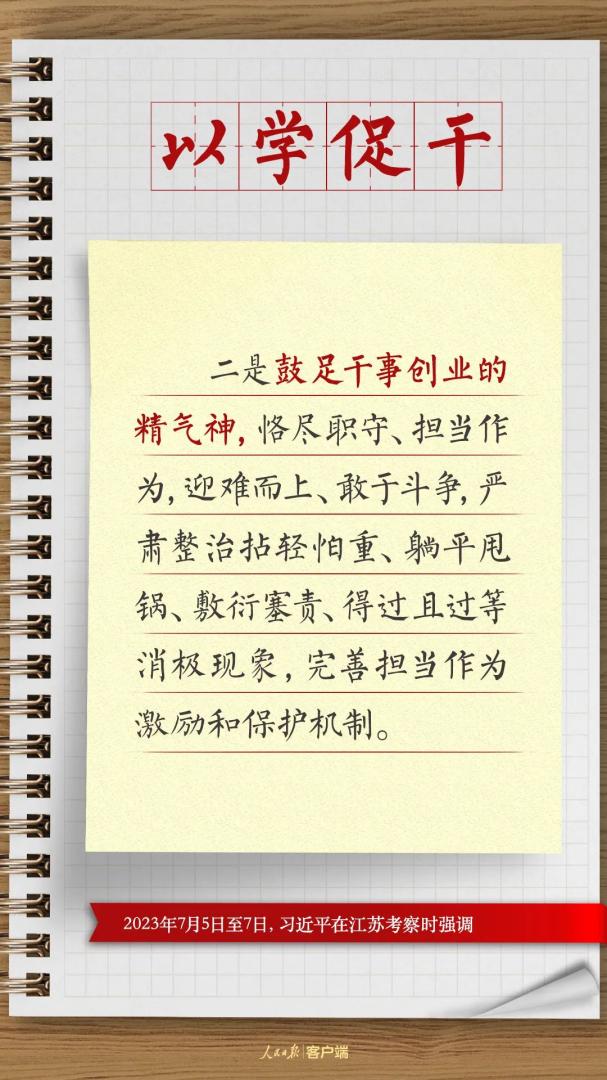 以学促干
二是鼓足干事创业的
精气神,恪尽职守、担当作
为,迎难而上、敢于斗争,严
肃整治拈轻怕重、躺平甩
锅、敷衍塞责、得过且过等
消极现象,完善担当作为
激励和保护机制。
2023年7月5日至7日,习近平在江苏考察时强调
人民日报|客户端